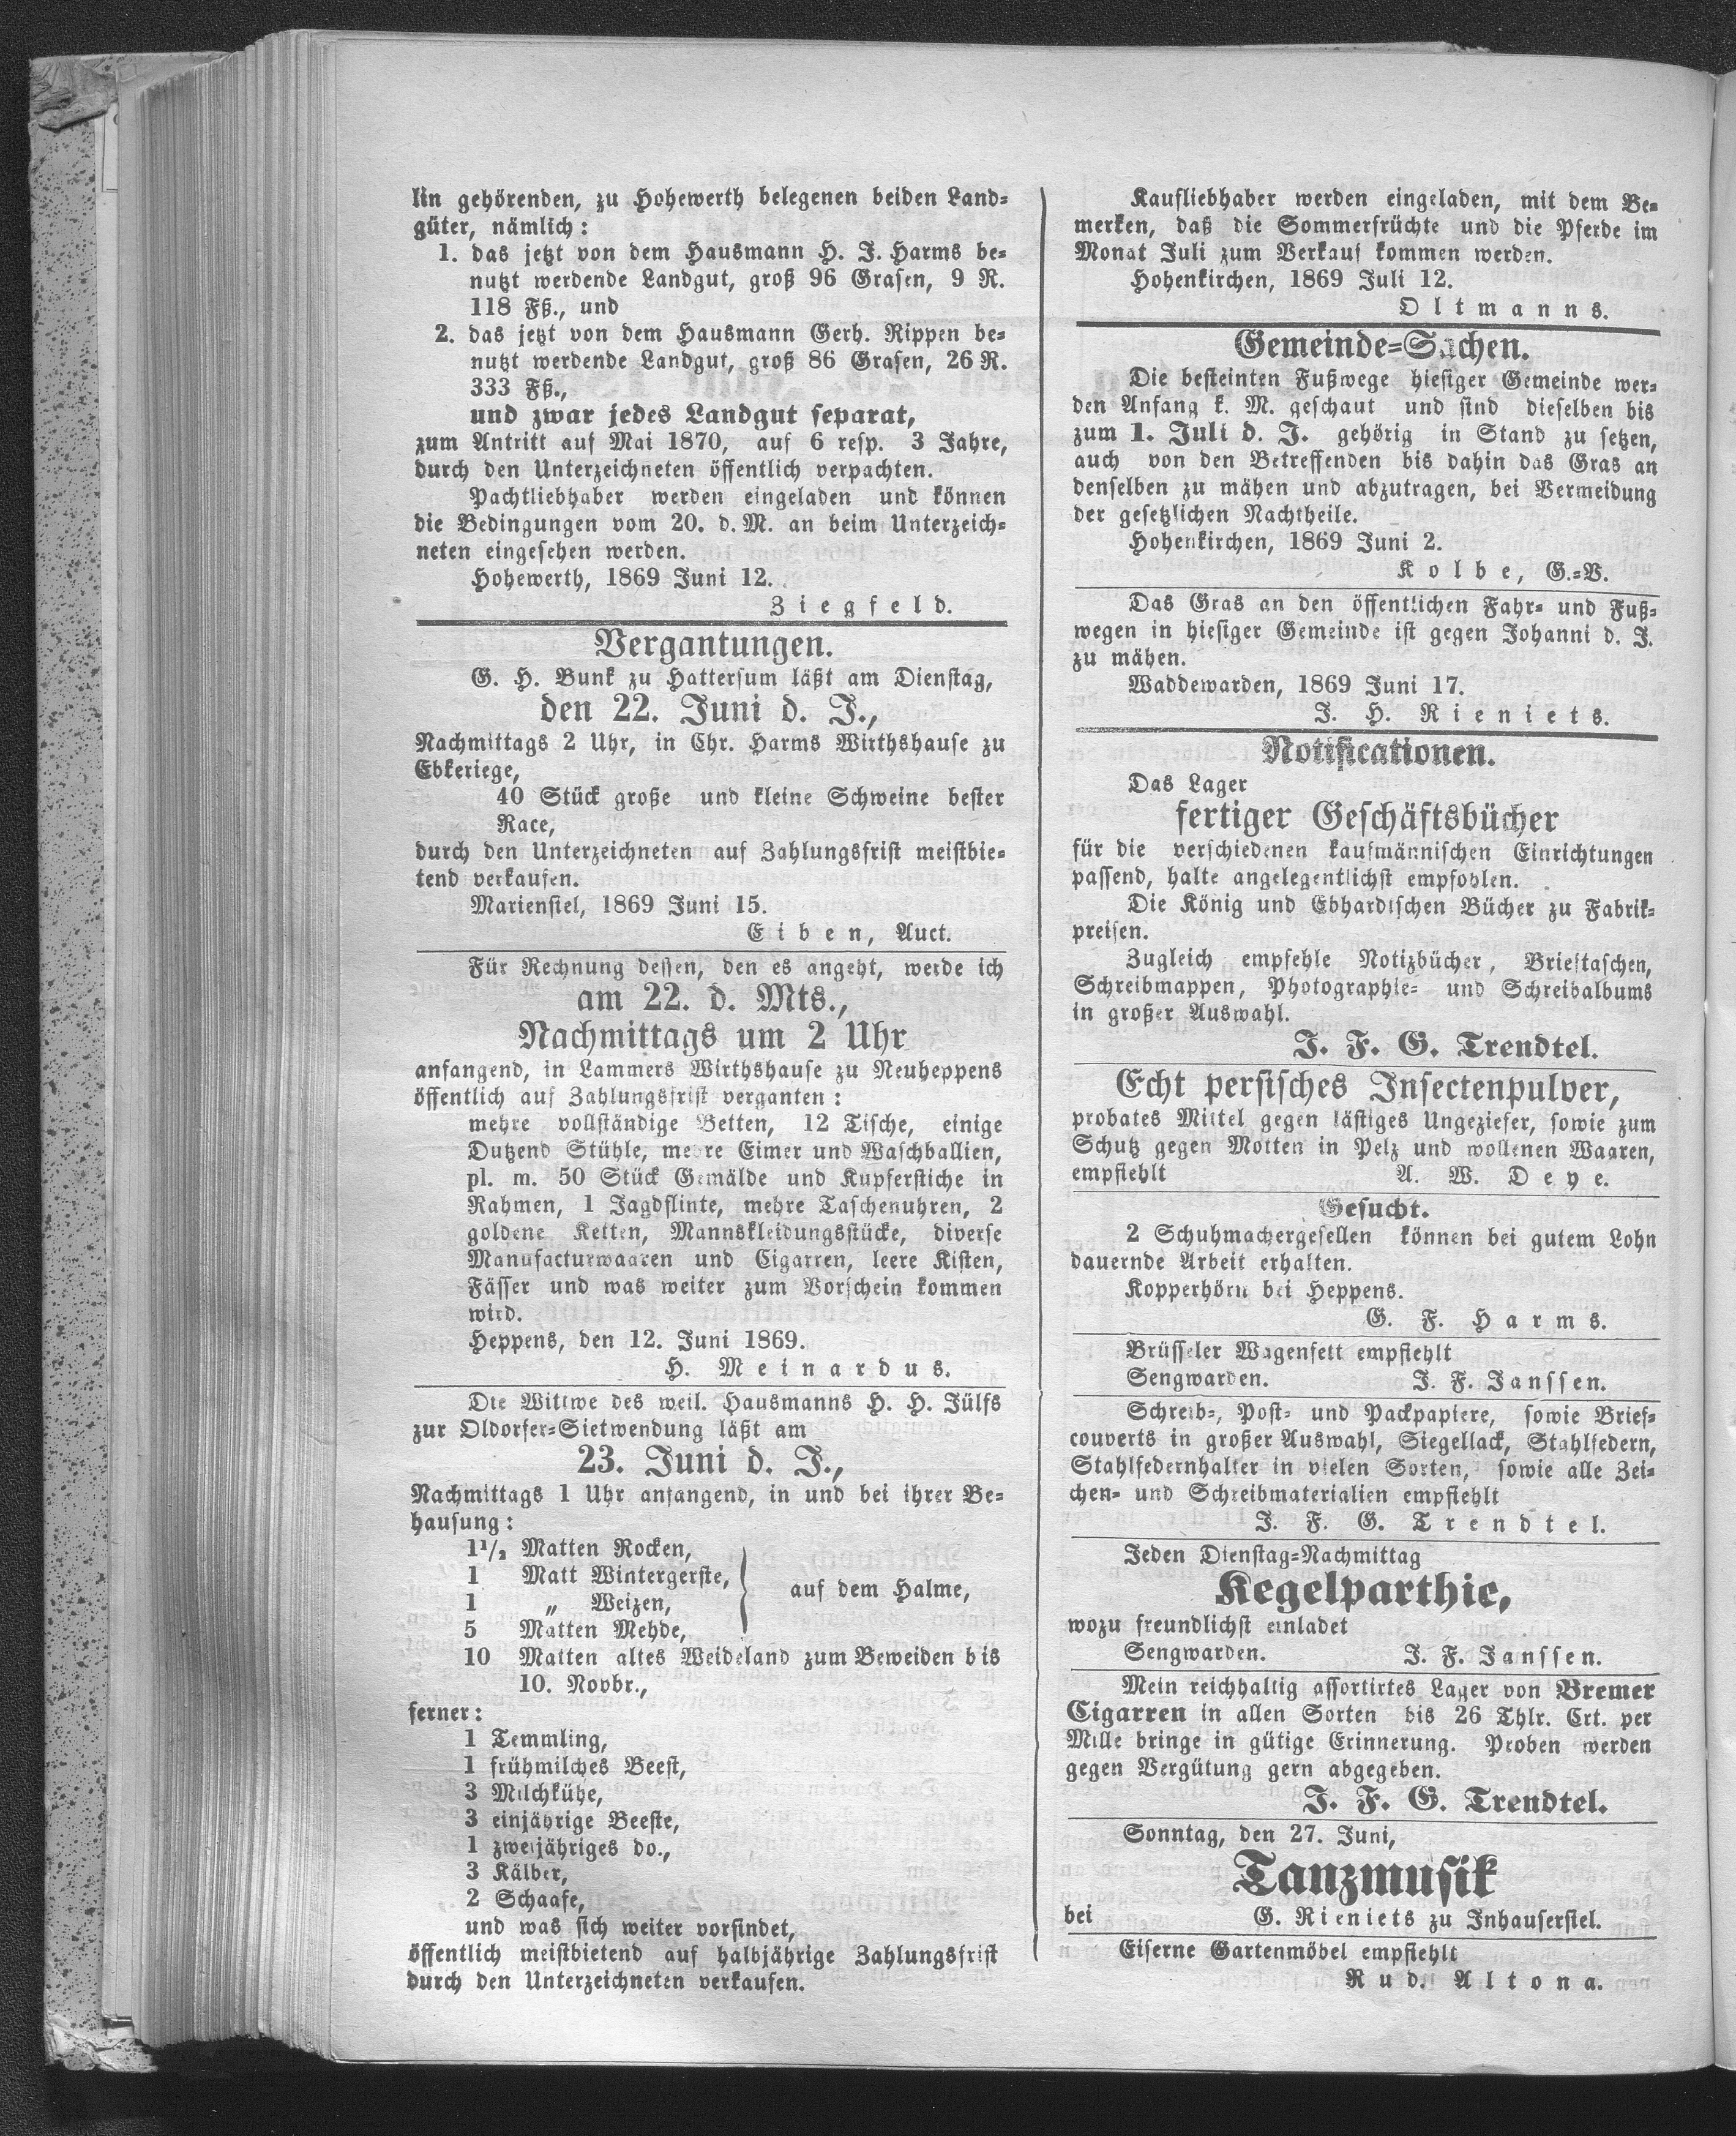 lin gehörenden, zu Hohewerth belegenen beiden Land-
güter, nämlich:
1. das jetzt von dem Hausmann H. J. Harms be-
nutzt werdende Landgut, groß 96 Grasen, 9 R.
118 Fß., und
2. das jetzt von dem Hausmann Gerh. Rippen be-
nutzt werdende Landgut, groß 86 Grasen, 26 R.
333 Fß.,
und zwar jedes Landgut separat,
zum Antritt auf Mai 1870, auf 6 resp. 3 Jahre,
durch den Unterzeichneten öffentlich verpachten.
Pachtliebhaber werden eingeladen und können
die Bedingungen vom 20. d. M. an beim Unterzeich-
neten eingesehen werden.
Hohewerth, 1869 Juni 12.
Ziegfeld.
Vergantungen.
G. H. Bunk zu Hattersum läßt am Dienstag,
den 22. Juni d. J.,
Nachmittags 2 Uhr, in Chr. Harms Wirthshause zu
Ebkeriege,
40 Stück große und kleine Schweine bester
Race,
durch den Unterzeichneten auf Zahlungsfrist meistbie-
tend verkaufen.
Mariensiel, 1869 Juni 15.
Eiben, Auct.
Für Rechnung dessen, den es angeht, werde ich
am 22. d. Mts.,
Nachmittags um 2 Uhr
anfangend, in Lammers Wirthshause zu Neuheppens
öffentlich auf Zahlungsfrist verganten:
mehre vollständige Betten, 12 Tische, einige
Dutzend Stühle, mehre Eimer und Waschballien,
pl. m. 50 Stück Gemälde und Kupferstiche in
Rahmen, 1 Jagdflinte, mehre Taschenuhren, 2
goldene Ketten, Mannskleidungsstücke, diverse
Manufacturwaaren und Cigarren, leere Kisten,
Fässer und was weiter zum Vorschein kommen
wird.
Heppens, den 12. Juni 1869.
H. Meinardus.
Die Wittwe des weil. Hausmanns H. H. Jülfs
zur Oldorfer-Sietwendung läßt am
23. Juni d. J.,
Nachmittags 1 Uhr anfangend, in und bei ihrer Be-
hausung:
1 1/2 Matten Rocken,
1 Matt Wintergerste,
1 „ Weizen,
5 Matten Mehde,
auf dem Halme,
10 Matten altes Weideland zum Beweiden bis
10. Novbr.,
ferner:
1 Temmling,
1 frühmilches Beest,
3 Milchkühe,
3 einjährige Beeste,
1 zweijähriges do.,
3 Kälber,
2 Schaafe,
und was sich weiter vorfindet,
öffentlich meistbietend auf halbjährige Zahlungsfrist
durch den Unterzeichneten verkaufen.
Kaufliebhaber werden eingeladen, mit dem Be-
merken, daß die Sommerfrüchte und die Pferde im
Monat Juli zum Verkauf kommen werden.
Hohenkirchen, 1869 Juli 12.
Oltmanns.
Gemeinde-Sachen.
Die besteinten Fußwege hiesiger Gemeinde wer-
den Anfang k. M. geschaut und sind dieselben bis
zum 1. Juli d. J. gehörig in Stand zu setzen,
auch von den Betreffenden bis dahin das Gras an
denselben zu mähen und abzutragen, bei Vermeidung
der gesetzlichen Nachtheile.
Hohenkirchen, 1869 Juni 2.
Kolbe, G.-V.
Das Gras an den öffentlichen Fahr- und Fuß-
wegen in hiesiger Gemeinde ist gegen Johanni d. J.
zu mähen.
Waddewarden, 1869 Juni 17.
J. H. Rieniets.
Notificationen.
Das Lager
fertiger Geschäftsbücher
für die verschiedenen kaufmännischen Einrichtungen
passend, halte angelegentlichst empfohlen.
Die König und Ebhardtschen Bücher zu Fabrik-
preisen.
Zugleich empfehle Notizbücher, Brieftaschen,
Schreibmappen, Photographie- und Schreibalbums
in großer Auswahl.
J. F. G. Trendtel.
Echt persisches Insectenpulver,
probates Mittel gegen lästiges Ungeziefer, sowie zum
Schutz gegen Motten in Pelz und wollenen Waaren,
empfiehlt A. W. Deye.
Gesucht.
2 Schuhmachergesellen können bei gutem Lohn
dauernde Arbeit erhalten.
Kopperhörn bei Heppens.
G. F. Harms.
Brüsseler Wagenfett empfiehlt
Sengwarden. J. F. Janssen.
Schreib-, Post- und Packpapiere, sowie Brief-
couverts in großer Auswahl, Siegellack, Stahlfedern,
Stahlfedernhalter in vielen Sorten, sowie alle Zei-
chen- und Schreibmaterialien empfiehlt
J. F. G. Trendtel.
Jeden Dienstag-Nachmittag
Kegelparthie,
wozu freundlichst einladet
Sengwarden. J. F. Janssen.
Mein reichhaltig assortirtes Lager von Bremer
Cigarren in allen Sorten bis 26 Thlr. Crt. per
Mille bringe in gütige Erinnerung. Proben werden
gegen Vergütung gern abgegeben.
J. F. G. Trendtel.
Sonntag, den 27. Juni,
Tanzmusik
bei G. Rieniets zu Inhausersiel.
Eiserne Gartenmöbel empfiehlt
Rud. Altona.